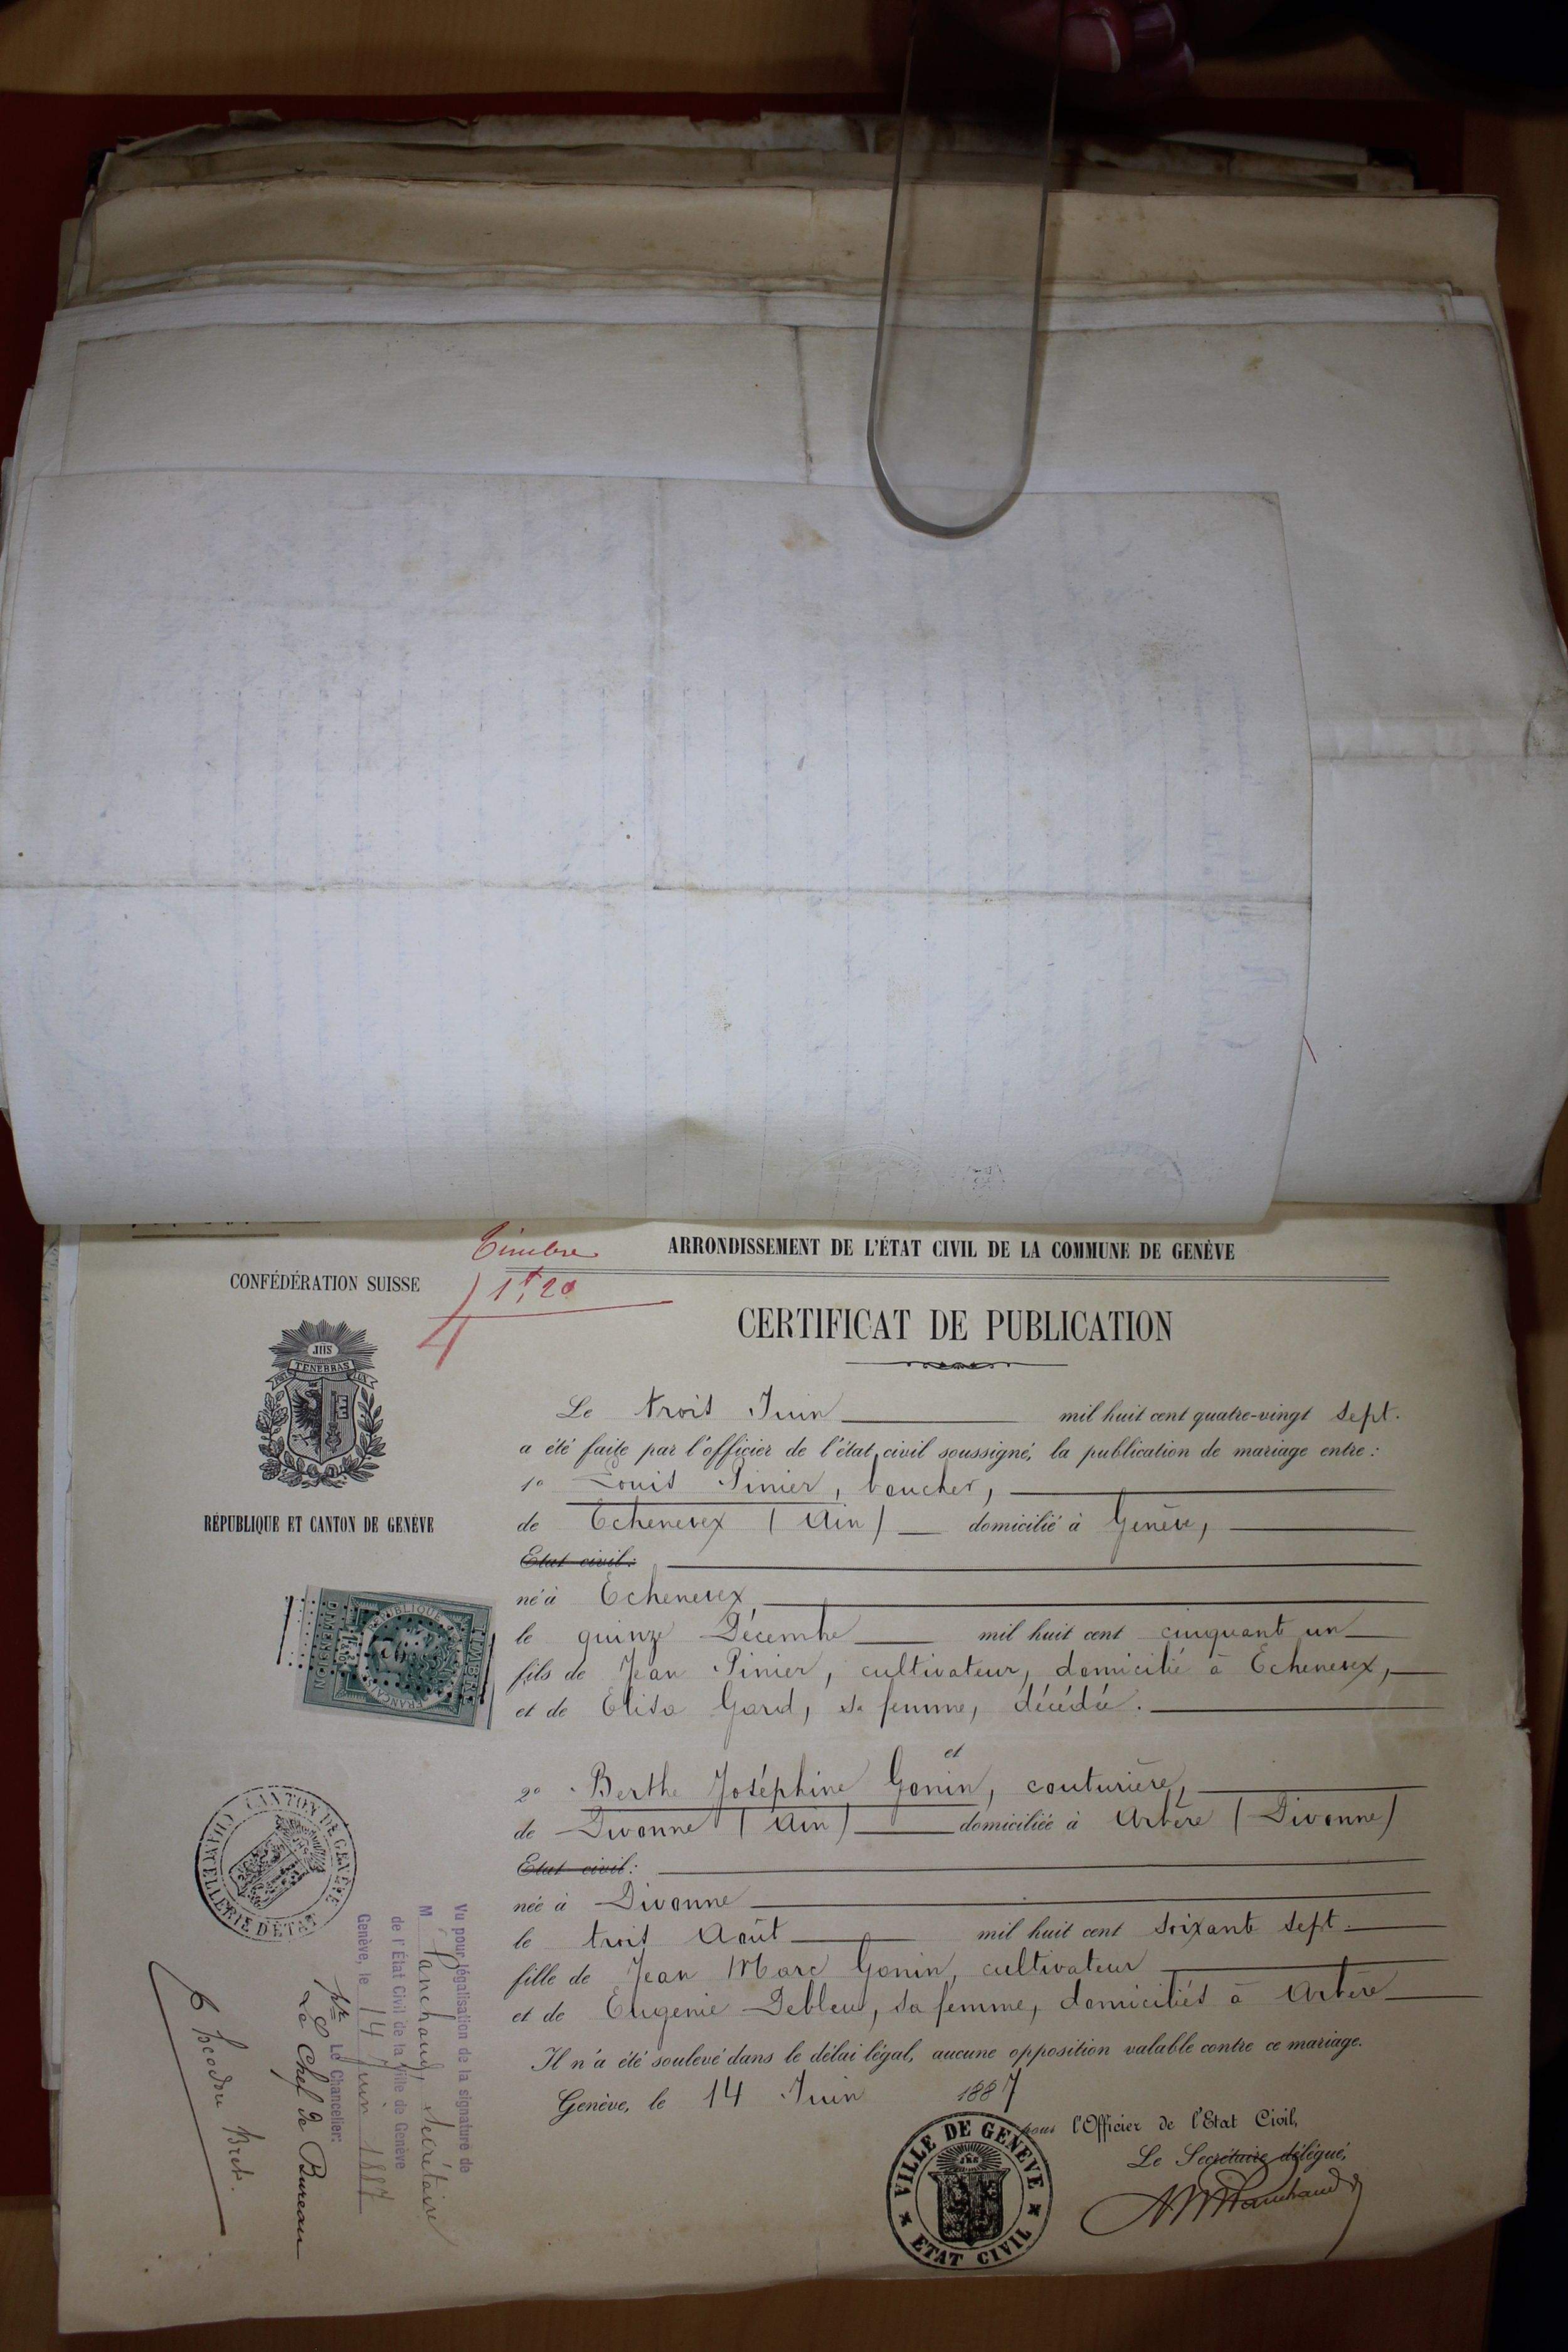 Timbre
1f,20
ARRONDISSEMENT DE L'ÉTAT CIVIL DE LA COMMUNE DE GENÈVE
CONFÉDÉRATION SUISSE
JHS
TENEBRAS
RÉPUBLIQUE ET CANTON DE GENÈVE
CERTIFICAT DE PUBLICATION
Le trois Juin mil huit cent quatre-vingt sept.
a été faite par l'officier de l'état civil soussigné, la publication de mariage entre:
1º Louis Pinier, boucher,
de Echenevex (Ain) domicilié à Genève,
Etat civil:
né à Echenevex
le quinze Décembre mil huit cent cinquant un
fils de Jean Pinier, cultivateur, domicilié à Echenevex,
et de Elisa Gard, sa femme, décédée.
et
2º Berthe Joséphine Gonin, couturière,
de Divonne (Ain) domiciliée à Arbère (Divonne)
Etat civil:
née à Divonne
le trois Août mil huit cent soixante sept.
fille de Jean Marc Gonin, cultivateur
et de Eugenie Debleu, sa femme, domiciliés à Arbère
Il n'a été soulevé dans le délai légal, aucune opposition valable contre ce mariage.
Genève, le 14 Juin 1887
pour l'Officier de l'Etat Civil,
Le Secrétaire délégué,
VILLE DE GENEVE
ETAT CIVIL
CANTON DE GENÈVE
CHANCELLERIE D'ÉTAT
Vu pour légalisation de la signature de
M Panchaud, Secrétaire
de l'État Civil de la Ville de Genève
Genève, le 14 Juin 1887
Le Chancelier:
Le Chef de Bureau
Theodore Bret.